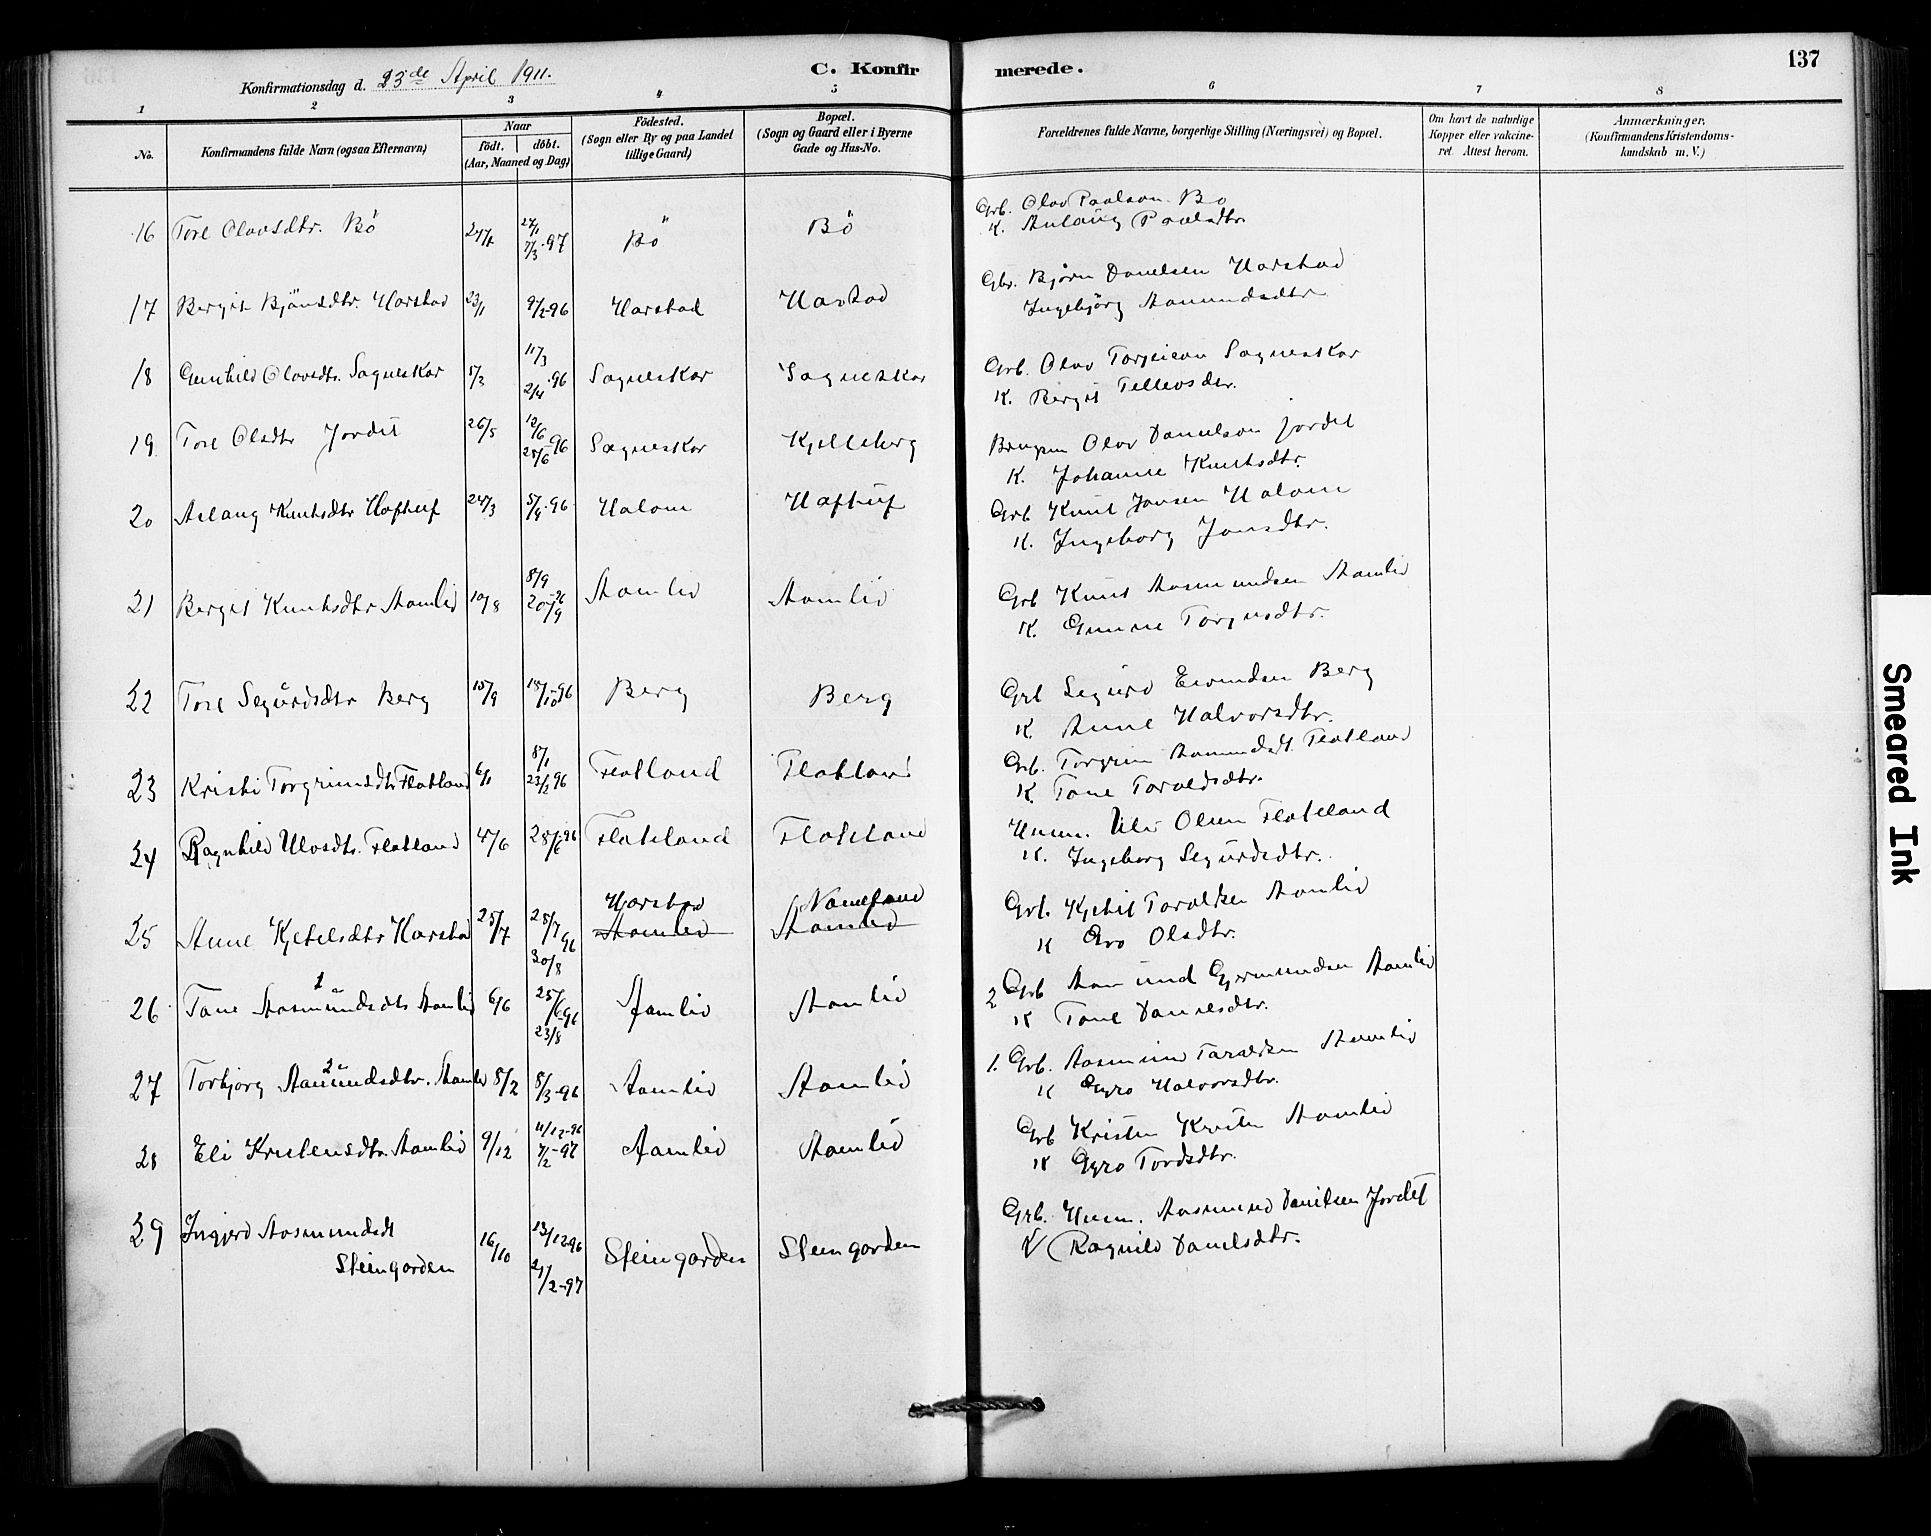 137
Konfirmationsdag d. 23de April 1911.
C. Konfirmerede.
1 2 3 4 5 6 7 8
No.
Konfirmandens fulde Navn (ogsaa Efternavn)
Naar
födt. döbt.
(Aar, Maaned og Dag)
Födested.
(Sogn eller By og paa Landet
tillige Gaard)
Bopæl.
(Sogn og Gaard eller i Byerne
Gade og Hus-No.
Forældrenes fulde Navne, borgerlige Stilling (Næringsvei) og Bopæl.
Om havt de naturlige
Kopper eller vakcine-
ret. Attest herom.
Anmærkninger.
(Konfirmandens Kristendoms-
kundskab m. V.)
16 Tore Olavsdtr. Bö 27/1 7/3-97 Bö Bö
Grb. Olav Paalsen Bö
K. Aslaug Paalsdtr.
17 Bergit Bjönsdtr. Harstad 23/1 9/2-96 Harstad Harstad
Gbr. Björn Danelsen Harstad
Ingebjörg Aamundsdtr
18 Gunhild Olavsdtr. Sagneskar 1/3 11/3 2/4-96 Sagneskar Sagneskar
Grb. Olav Torjeison Sagneskar
K. Bergit Tellevsdtr.
19 Tore Olsdtr Jordet 26/5 12/6 28/6-96 Sagneskar Kjelleberg
Olav Danelson Jordet
K. Johanne Knutsdtr.
20 Aslaug Knutsdtr Haftuf 24/3 5/4-96 Halom Haftuf
Grb Knut Jonsen Halom
K. Ingeborg Jonsdtr.
21 Bergit Knutsdtr Aamlid 10/8 8/9 20/9-96 Aamlid Aamlid
Grb Knut Aasmundsen Aamlid
K. Gunne Torjusdtr.
22 Tore Segurdsdtr Berg 15/9 18/10-96 Berg Berg
Grb Segurd Eivindsen Berg
K Anne Halvorsdtr.
23 Kristi Torgrimsdtr Flatland 6/1 8/1 23/2-96 Flatland Flatland
Grb. Torgrim Aamundst Flatland
K. Tone Taroldsdtr.
24 Ragnhild Ulvsdtr. Flatland 4/6 28/6-96 Flateland Flateland
Husm. Ulv Olsen Flateland
K. Ingeborg Segurdsdtr.
25 Anne Kjetelsdtr Harstad 25/7 28/7 30/8 96 Harstad Aamlid Nomeland Aamlid
Grb. Kjetil Taraldsen Aamlid
K Gro Olsdtr.
26 Tone Aasmundsdtr Aamlid 1 6/6 25/6-96 23/8 Aamlid Aamlid
2 Grb Aamund Gjermundsen Aamlid
K Tone Danelsdtr.
27 Torbjorg Aamundsdtr. Aamlid 2 8/2 8/3-96 Aamlid Aamlid
1. Grb. Aasmund Taraldsen Aamlid
K Gyro Halvorsdtr.
28 Eli Kristensdtr. Aamlid 9/12 11/12-96 7/2-97 Aamlid Aamlid
Grb Kristen Aamlid
K Gyro Tordsdtr.
29 Ingjerd Aasmundsdt
Steingarden 16/10 13/12-96 21/2-97 Steingarden Steingarden
Grb. Husm. Aasmund Danilsen Jordet
K Ragnild Danelsdtr.
Smeared Ink